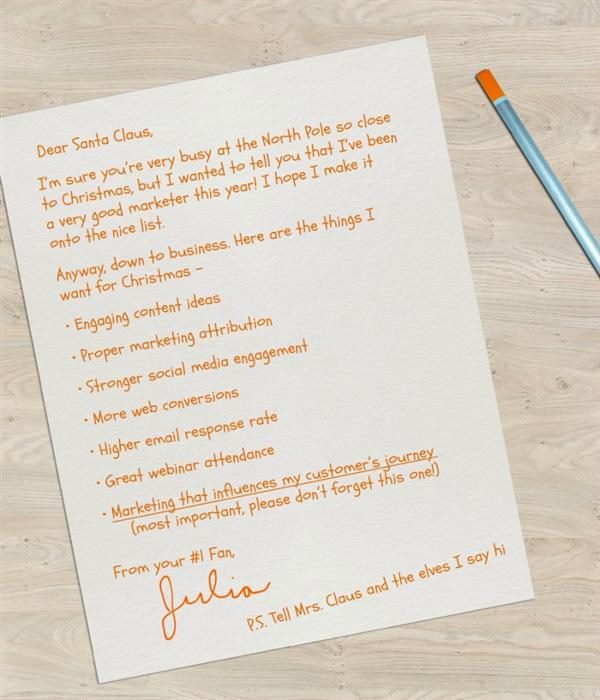 Dear Santa Claus,
I'm sure you're very busy at the North Pole so close
to Christmas, but I wanted to tell you that I've been
a very good marketer this year! I hope I make it
onto the nice list.
Anyway, down to business. Here are the things I
want for Christmas –
• Engaging content ideas
• Proper marketing attribution
• Stronger social media engagement
• More web conversions
• Higher email response rate
• Great webinar attendance
• Marketing that influences my customer's journey
(most important, please don't forget this one!)
From your #1 Fan,
Julia
P.S. Tell Mrs. Claus and the elves I say hi